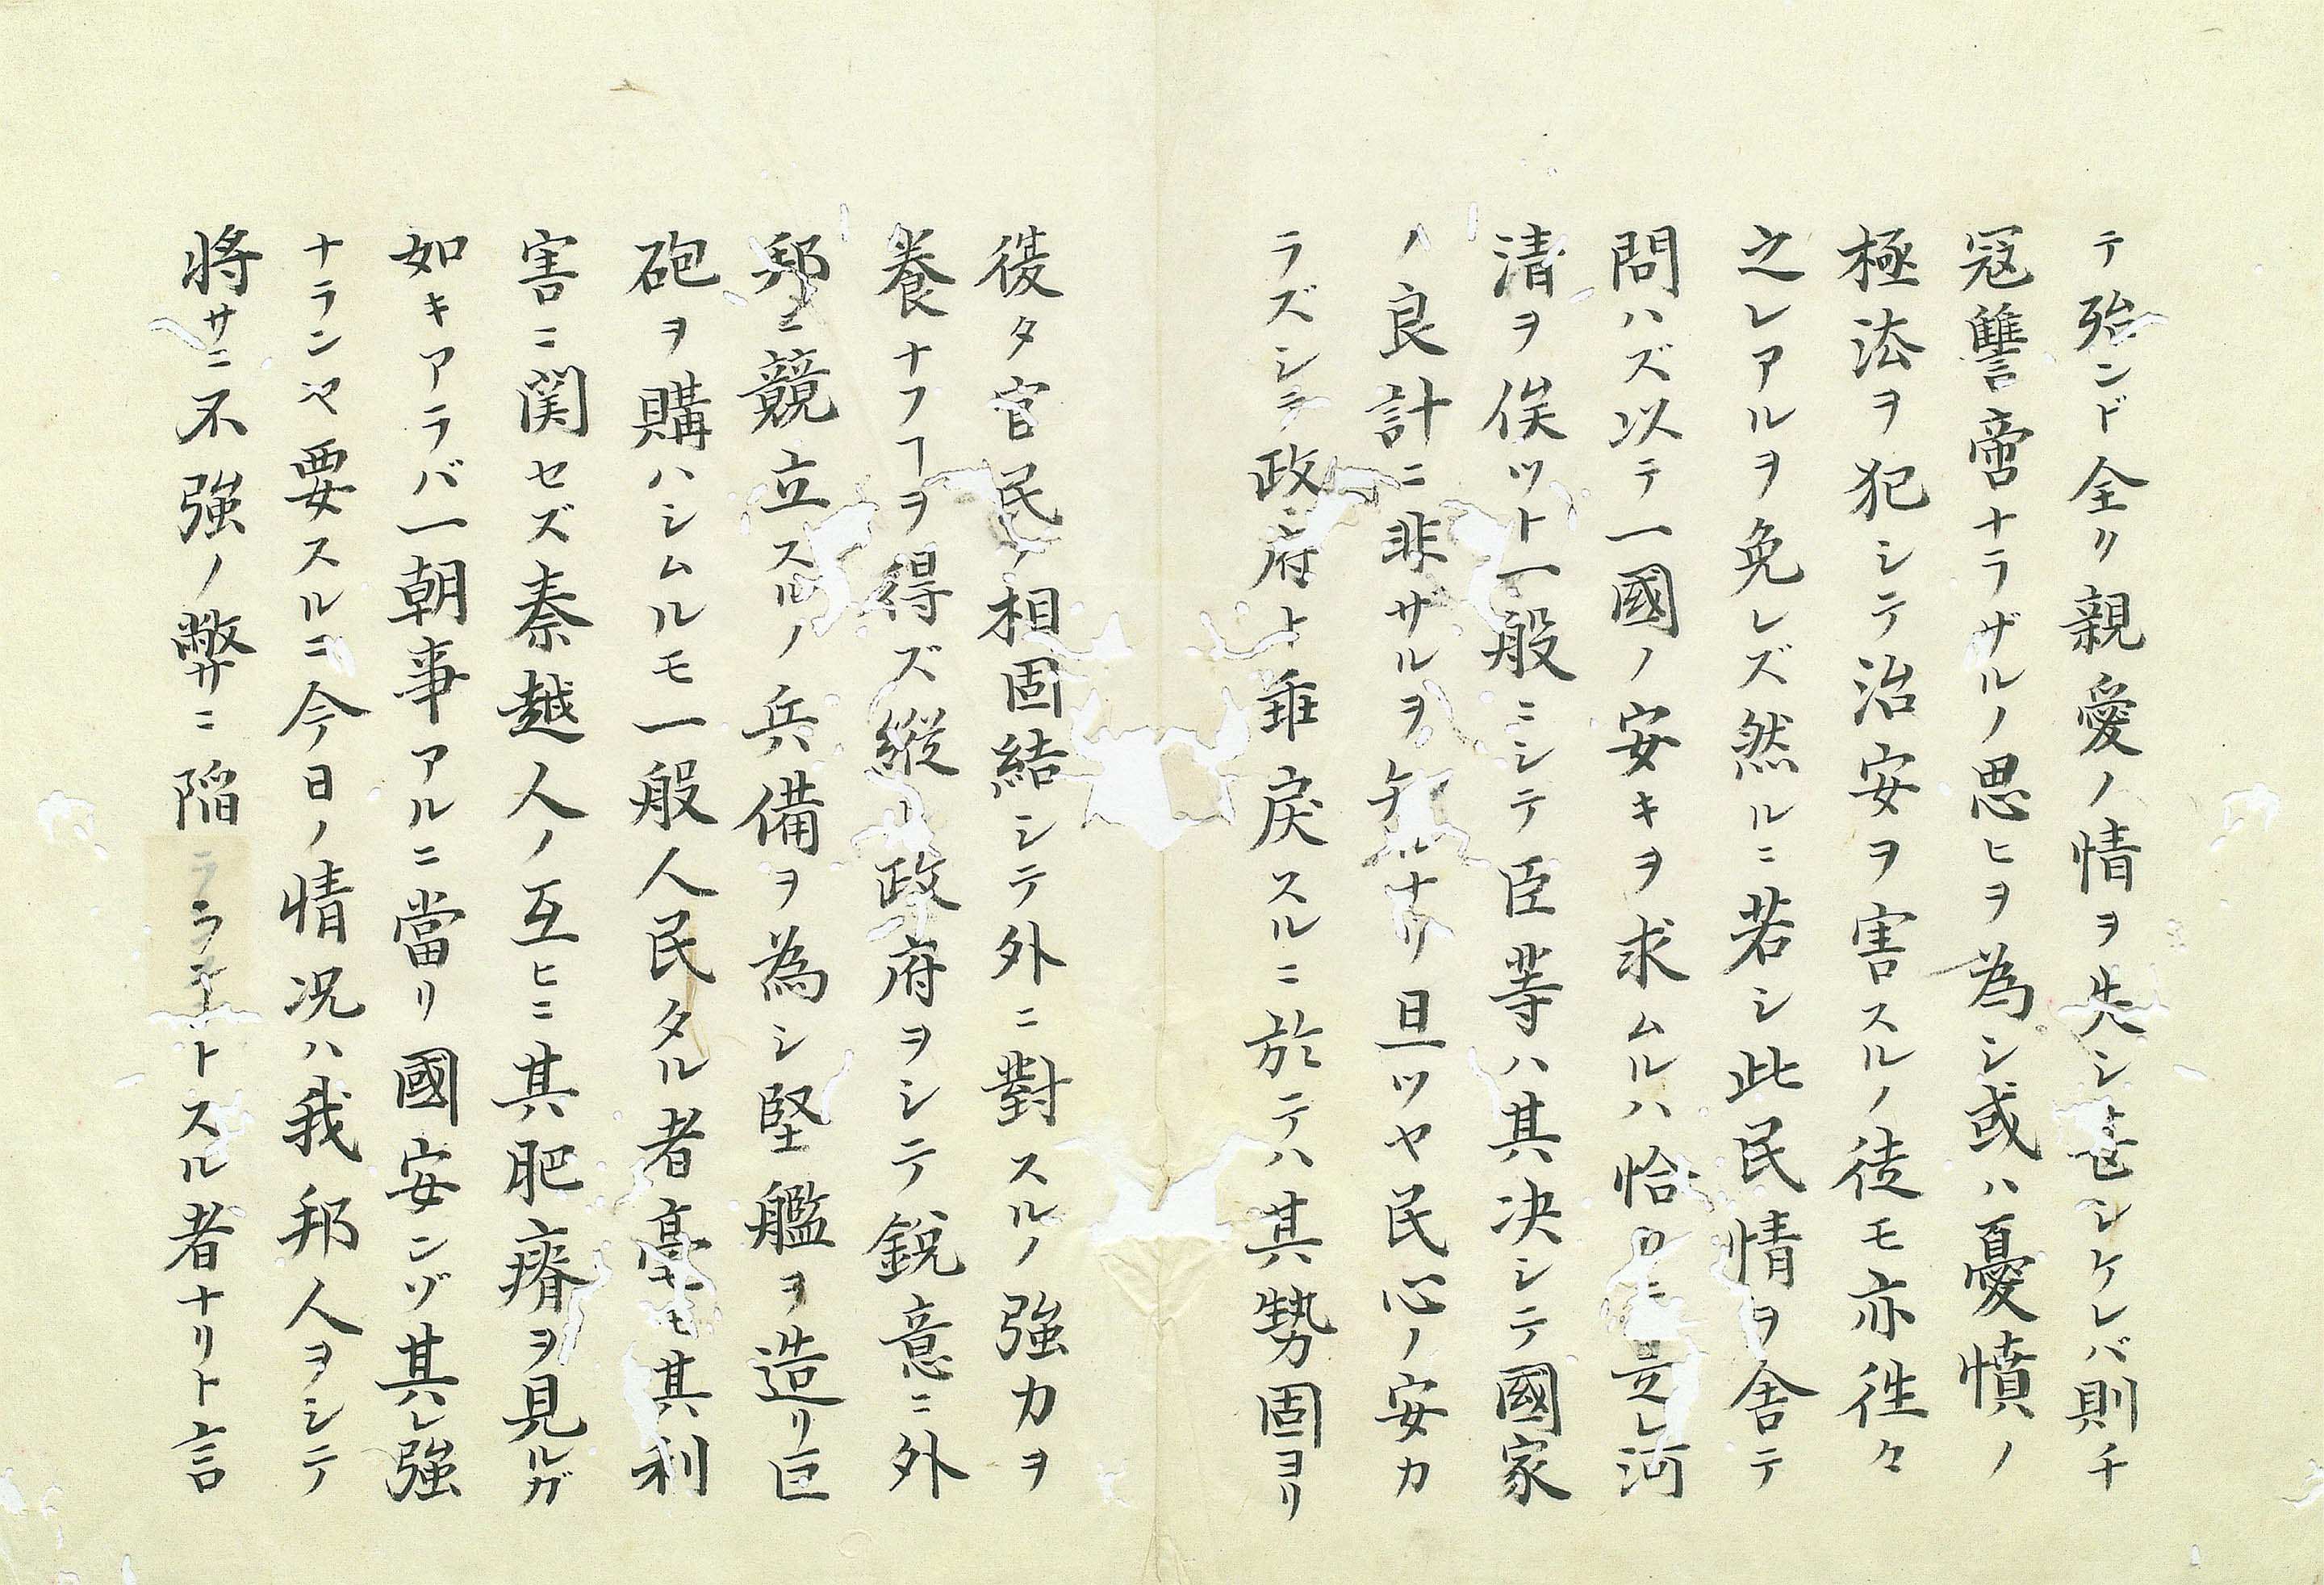 テ殆ンド全リ親愛ノ情ヲ失シ甚シケレバ則チ
冦讐啻ナラザルノ思ヒヲ為シ或ハ憂憤ノ
極法ヲ犯シテ治安ヲ害スルノ徒モ亦徃々
之レアルヲ免レズ然ルニ若シ此民情ヲ舎テ
問ハズ以テ一國ノ安キヲ求ムルハ恰カモ立レ河
清ヲ俟ツト一般ニシテ臣等ハ其决シテ國家
ノ良計ニ非サルヲ知ルナリ且ツヤ民心ノ安カ
ラズシテ政府ト乖戻スルニ於テハ其勢固ヨリ
復タ官民ノ相固結シテ外ニ對スルノ強力ヲ
養ナフヿヲ得ズ縦リ政府ヲシテ鋭意ニ外
邦ニ競立スルノ兵備ヲ為シ堅艦ヲ造リ巨
砲ヲ購ハシムルモ一般人民タル者毫モ其利
害ニ関セズ秦越人ノ互ヒニ其肥瘠ヲ見ルガ
如キアラバ一朝事アルニ當リ國安ンゾ其レ強
ナランヤ要スルニ今日ノ情况ハ我邦人ヲシテ
將サニ不強ノ弊サニ陥ラシメントスル者ナリト言